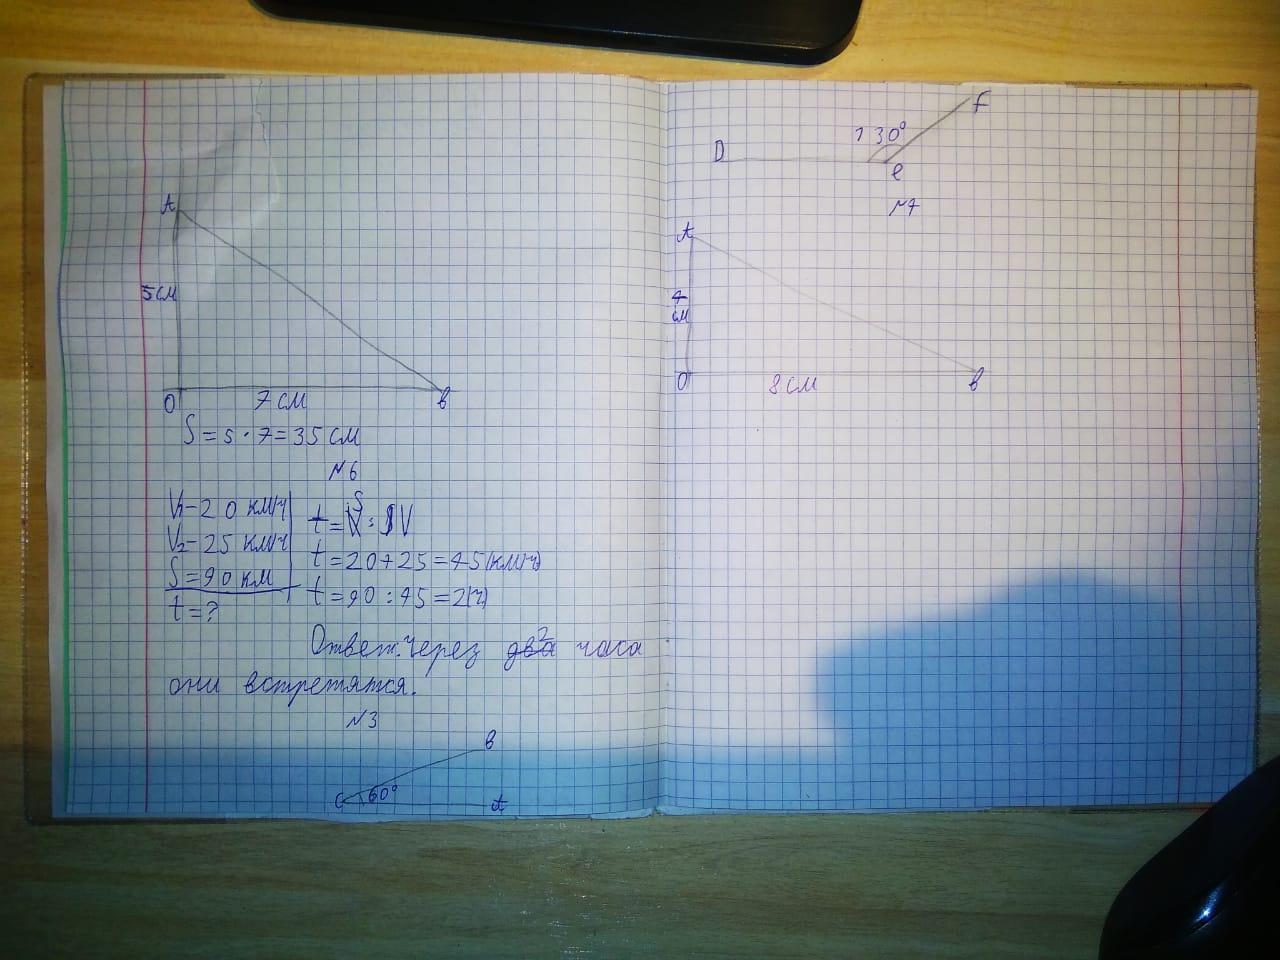 A
5 см
O 7 см B
S = 5 · 7 = 35 см
№6
V1 – 20 км/ч
V2 – 25 км/ч
S = 90 км
t = ?
t = S : V
t = 20 + 25 = 45 (км/ч)
t = 90 : 45 = 2 (ч)
Ответ: через 2 часа
они встретятся.
№3
B
C 60° A
F
130°
D
e
№7
A
4
см
O 8 см B